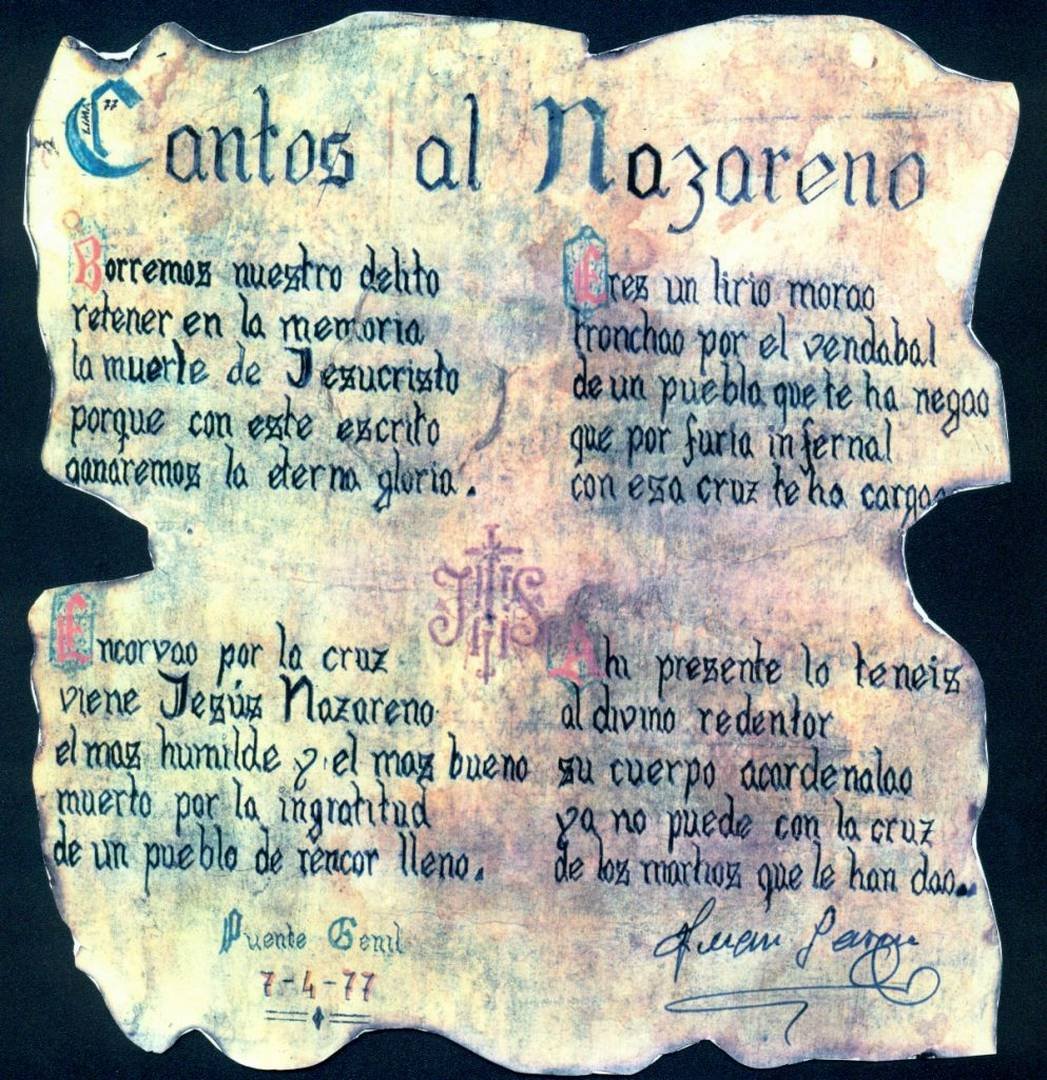 Cantos al Nazareno
LIMA 77
Borremos nuestro delito
retener en la memoria
la muerte de Jesucristo
porque con este escrito
ganaremos la eterna gloria.
Eres un lirio morao
tronchao por el vendabal
de un pueblo que te ha negao
que por furia infernal
con esa cruz te ha cargao
JHS
Encorvao por la cruz
viene Jesús Nazareno
el mas humilde y el mas bueno
muerto por la ingratitud
de un pueblo de rencor lleno.
Ahi presente lo teneis
al divino redentor
su cuerpo acardenalao
ya no puede con la cruz
de los martios que le han dao.
Puente Genil
7-4-77
Juan